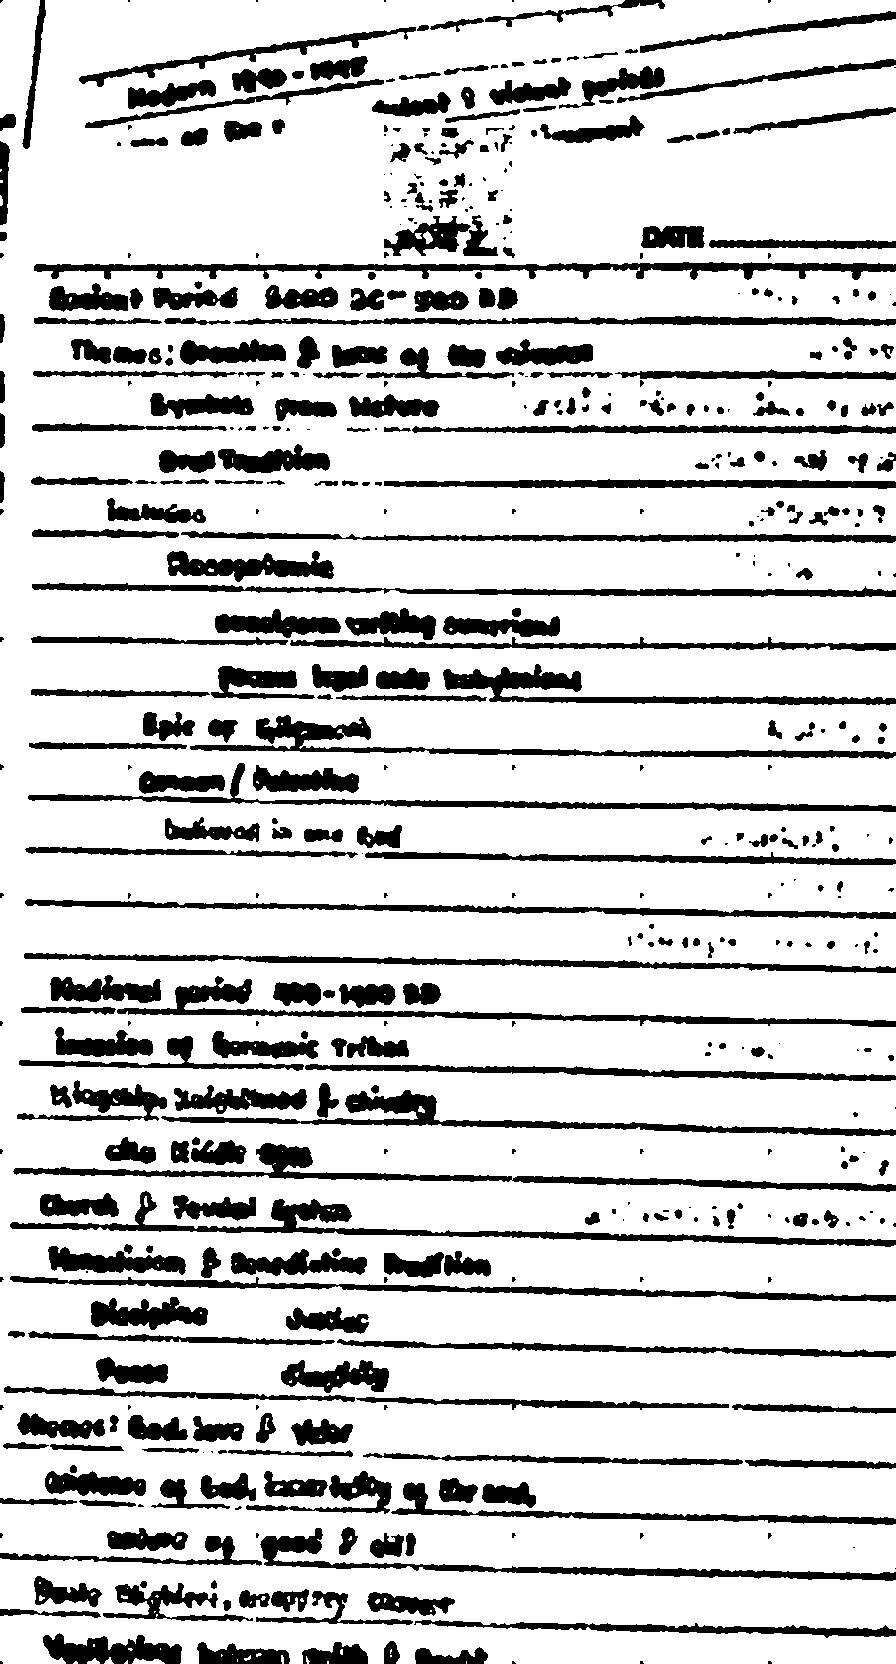 Modern 1940 - 1945
violent & violent periods
of the
DATE
Ancient Period BC - 500 AD
Themes: Creation & laws of the universe
Symbols from Nature
Oral Tradition
includes
Mesopotamia
cuneiform writing sumerians
famous legal code babylonians
Epic of Gilgamesh
Canaan / Palestine
believed in one God
Medieval period 500 - 1400 AD
invasion of Germanic Tribes
Kingship, knighthood & chivalry
Middle Ages
Church & Feudal System
Monasticism & Benedictine Tradition
Discipline
Peace Simplicity
themes: God, love & Valor
existence of God, immortality of the soul,
nature of good & evil
Dante Alighieri, Geoffrey Chaucer
between faith & doubt